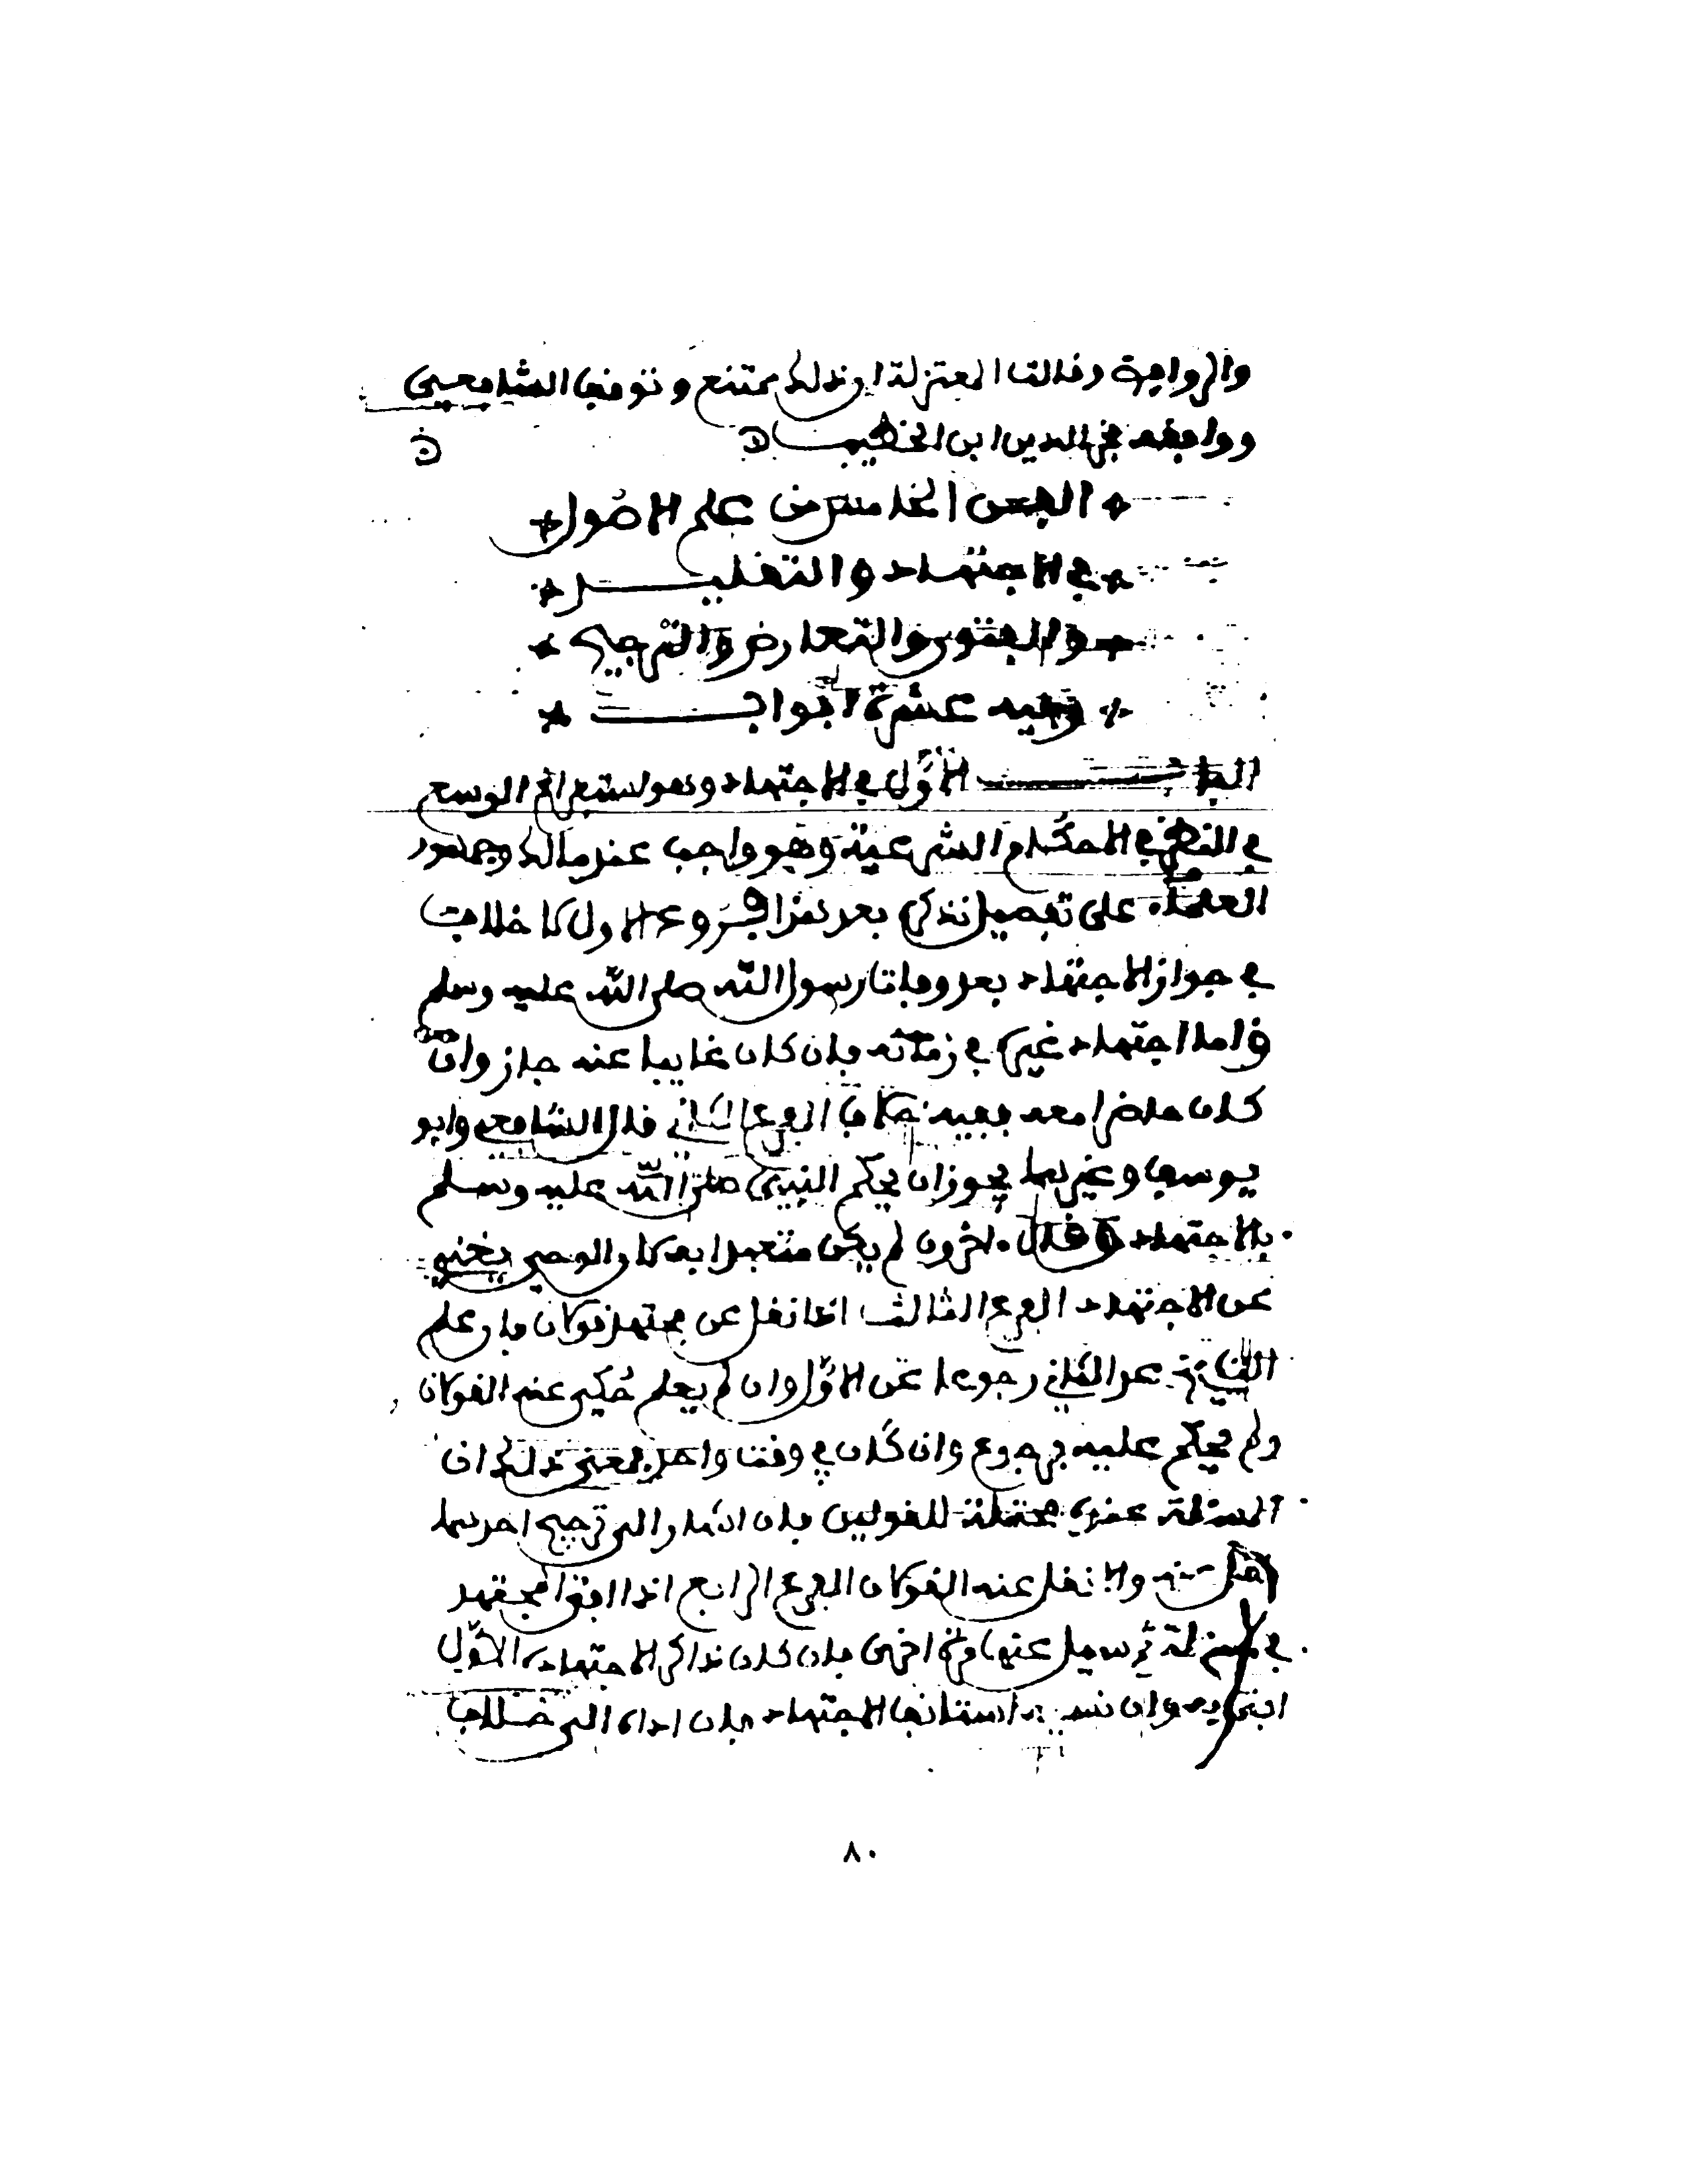 والروافض وقالت المعتزلة ان ذلك ممتنع وتوقف الشافعي
ووافقه فخر الدين ابن الخطيب
الفن الخامس من علم الاصول
في الاجتهاد والتقليد
والفتوى والتعارض والترجيح
وفيه عشرة ابواب
الباب الاول في الاجتهاد وهو استفراغ الوسع
في النظر في الاحكام الشرعية وهو واجب عند مالك وجمهور
العلماء على تفصيل نذكره بعد هذا فروع الاول لا خلاف
في جواز الاجتهاد بعد وفاة رسول الله صلى الله عليه وسلم
واما اجتهاد غيره في زمانه فان كان غايبا عنه جاز وان
كان حاضرا معه ففيه خلاف الفرع الثاني قال الشافعي وابو
يوسف وغيرهما يجوز ان يحكم النبي صلى الله عليه وسلم
بالاجتهاد وقال ءاخرون لم يكن متعبدا به لان الوحي يغني
عن الاجتهاد الفرع الثالث اذا نقل عن مجتهد قولان فان علم
التاريخ عد الثاني رجوعا عن الاول وان لم يعلم حكي عنه القولان
ولم يحكم عليه برجوع وان كان في وقت واحد فمعنى ذلك ان
المسئلة عنده محتملة للقولين فان اشار الى ترجيح احدهما
والا نقل عنه القولان الفرع الرابع اذا افتى المجتهد
في مسئلة ثم سيل عنها مرة اخرى فان كان ذاكرا لاجتهاده الاول
افتى به وان نسيه استانف الاجتهاد فان اداه الى خلاف
٨٠